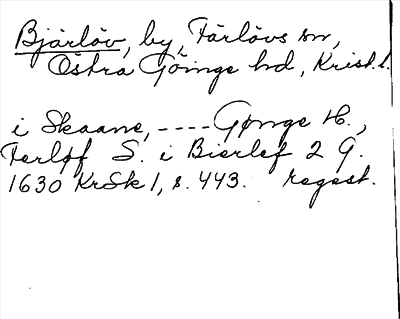 Bjärlöv, by, Färlövs sn,
Östra Göinge hd, Krist. l.
i Skaane, ---- Gønge H.,
Ferløf S. i Bierlef 2 G.
1630 KrSk 1, s. 443. regest.